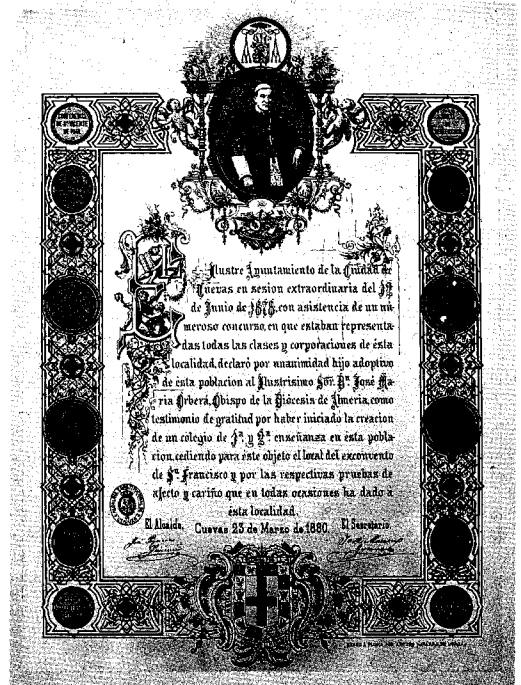 El
Ilustre Ayuntamiento de la Ciudad de
Cuevas en sesion extraordinaria del
de Junio de 1878, con asistencia de un nu-
meroso concurso, en que estaban representa-
das todas las clases y corporaciones de ésta
localidad, declaró por unanimidad hijo adoptivo
de ésta poblacion al Ilustrisimo Sor. Dn. José Ma-
ria Orberá, Obispo de la Diócesis de Almeria, como
testimonio de gratitud por haber iniciado la creacion
de un colegio de 1ª y 2ª enseñanza en ésta pobla-
cion, cediendo para éste objeto el local del exconvento
de Sn. Francisco y por las respectivas pruebas de
afecto y cariño que en todas ocasiones ha dado á
ésta localidad.
El Alcalde,
Cuevas 23 de Marzo de 1880.
El Secretario,